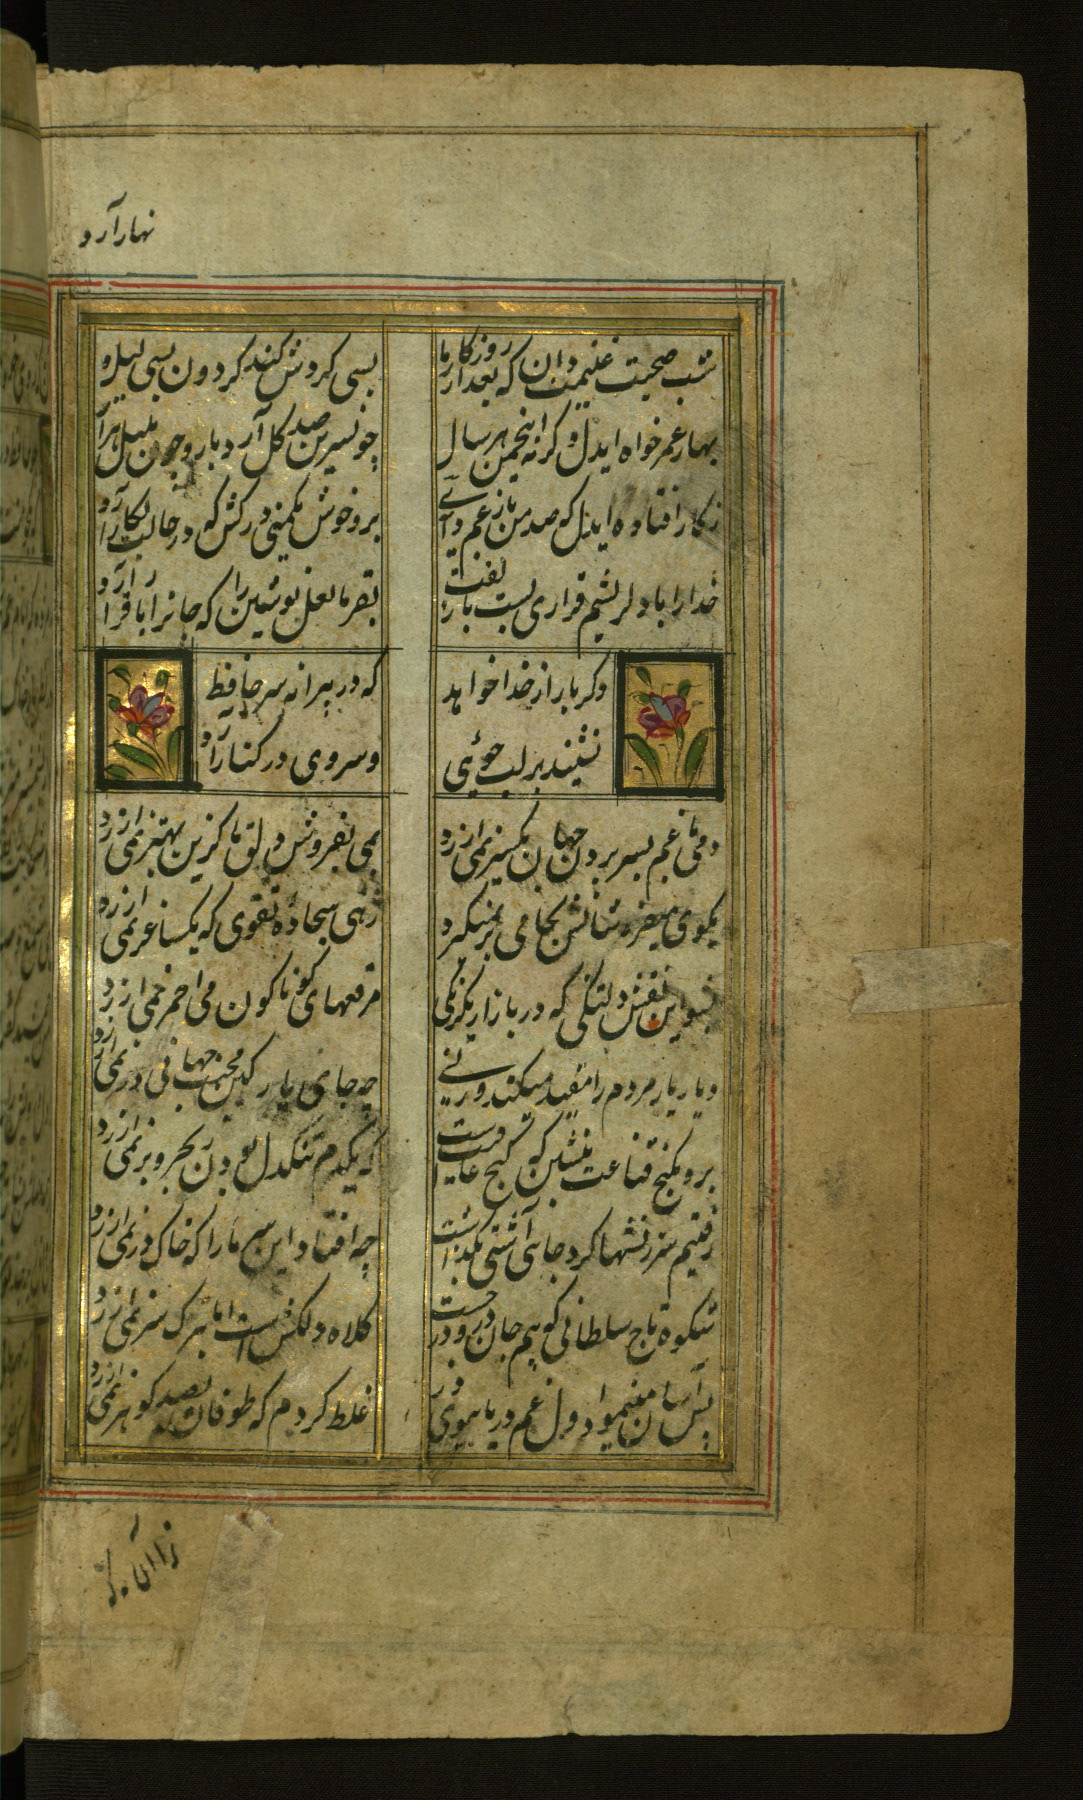 نهار آرد
شب صحبت غنیمت دان که بعد از روزگار ما
بسی گردش کند گردون بسی لیل و
بهار عمر خواه ایدل وگرنه این چمن هر سال
چو نسرین صد گل آرد بار و چون بلبل هزار آرد
ز کار افتاده ایدل که صد من بار غم داری
برو خوش یکمنی درکش که در حالت بکار آرد
خدا را با دلریشم قراری بست با زلفت
بفرما لعل نوشین را که جانرا با قرار آرد
وگر بار از خدا خواهد
که در پیرانه سر حافظ
نشیند بر لب جوئی
و سروی در کنار آرد
دمی با غم بسر بردن جهان یکسر نمی ارزد
بمی بفروش دلق ما کزین بهتر نمی ارزد
بکوی میفروشانش بجامی بر نمیگیرد
زهی سجاده تقوی که یکساغر نمی ارزد
بشو این نقش دلتنگی که در بازار یکرنگی
مرقعهای گوناگون می احمر نمی ارزد
دیار یار مردم را مقید میکند ورنی
چه جای پارس کین محنت جهانی در نمی ارزد
برو کنج قناعت بنشین که کنج عافیت
که یکدم تنگدل بودن بحر و بر نمی ارزد
رقیبم سرزنشها کرد
چه افتاد این سر ما را که خاک در نمی ارزد
شکوه تاج سلطانی که بیم جان درو درجست
کلاه دلکش است اما بترک سر نمی ارزد
بس آسان مینمود اول غم دریا ببوی
غلط کردم که طوفانش بصد گوهر نمی ارزد